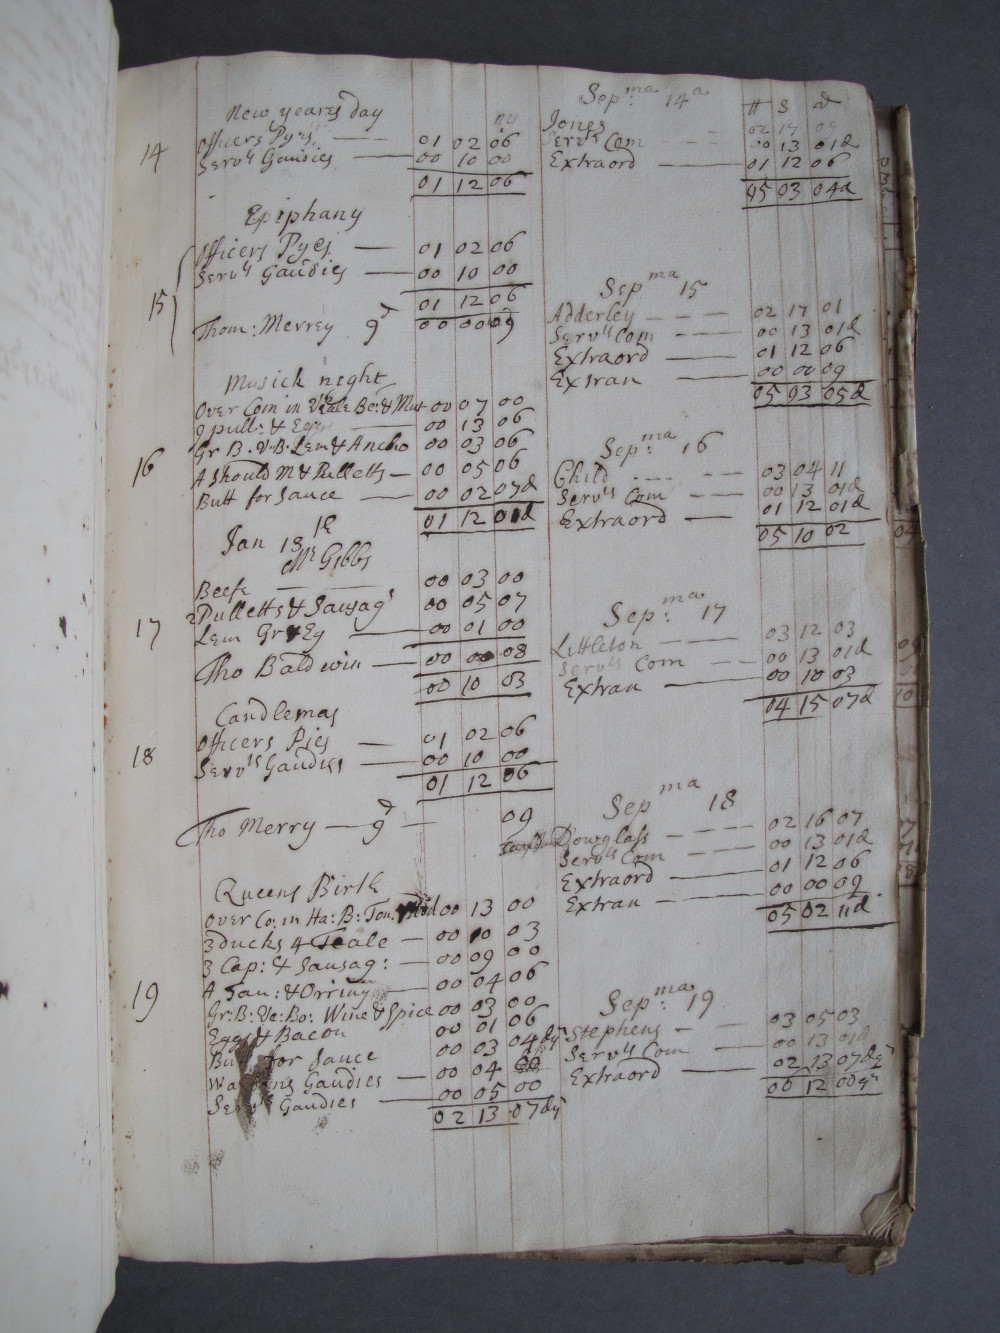 New years day
14
Officers Pyes 01 02 06
Servts Gaudies 00 10 00
01 12 06
Epiphany
15
Officers Pyes 01 02 06
Servts Gaudies 00 10 00
01 12 06
Thom: Merrey 9d 00 00 09
Musick night
16
Over Com in Veale Bo: & Mut 00 07 00
9 pull: & Eggs 00 13 06
Gr B. V. B. Lem & Ancho 00 03 06
A Should M & Pulletts 00 05 06
Butt for Sauce 00 02 07d
01 12 01d
Jan 18
Mr Gibbs
17
Beefe 00 03 00
2 Pulletts & Sausags 00 05 07
Lem Gr & Eg 00 01 00
Tho Baldwin 00 00 08
00 10 03
Candlemas
18
Officers Pies 01 02 06
Servts Gaudies 00 10 00
01 12 06
Tho Merry 9d 09
Queens Birth
19
Over Co: in Ha: B: Ton. 00 13 00
3 ducks 4 Teale 00 10 03
3 Cap: & Sausag: 00 09 00
A Tan: & Orring 00 04 06
Gr: B: Ve: Bo: Wine & Spice 00 03 00
Eggs & Bacon 00 01 06
Butt for Sauce 00 03 04dq
Gaudies 00 04
Servts Gaudies 00 05 00
02 13 07dq
Sepma 14a
ll s d
Jones 02 17 09
Servts Com 00 13 01d
Extraord 01 12 06
05 03 04d
Sepma 15
Adderley 02 17 01
Servts Com 00 13 01d
Extraord 01 12 06
Extran 00 00 09
05 03 05d
Sep:ma 16
Child 03 04 11
Servts Com 00 13 01d
Extraord 01 12 01d
05 10 02
Sep:ma 17
Littleton 03 12 03
Servts Com 00 13 01d
Extran 00 10 03
04 15 07d
Sepma 18
Dowglass 02 16 07
Servts Com 00 13 01d
Extraord 01 12 06
Extran 00 00 09
05 02 11d
Sep:ma 19
Stephens 03 05 03
Servts Com 00 13 01d
Extraord 02 13 07dq
06 12 00q